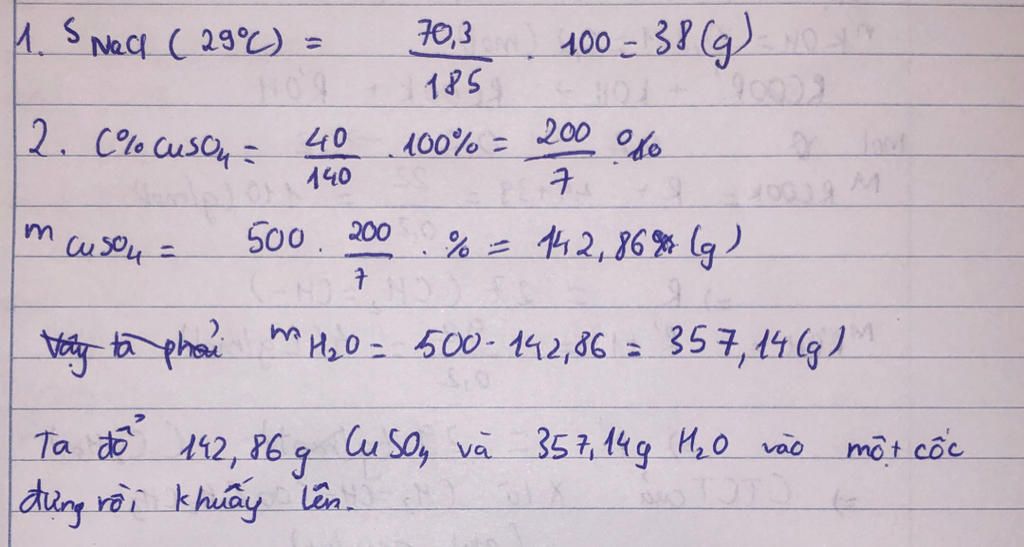 1. S NaCl (29°C) = 70,3/185 . 100 = 38 (g)
2. C% CuSO4 = 40/140 . 100% = 200/7 %
m CuSO4 = 500 . 200/7 . % = 142,86 (g)
Vậy ta phải m H2O = 500 - 142,86 = 357,14 (g)
Ta đổ 142,86 g CuSO4 và 357,14 g H2O vào một cốc
đựng rồi khuấy lên.